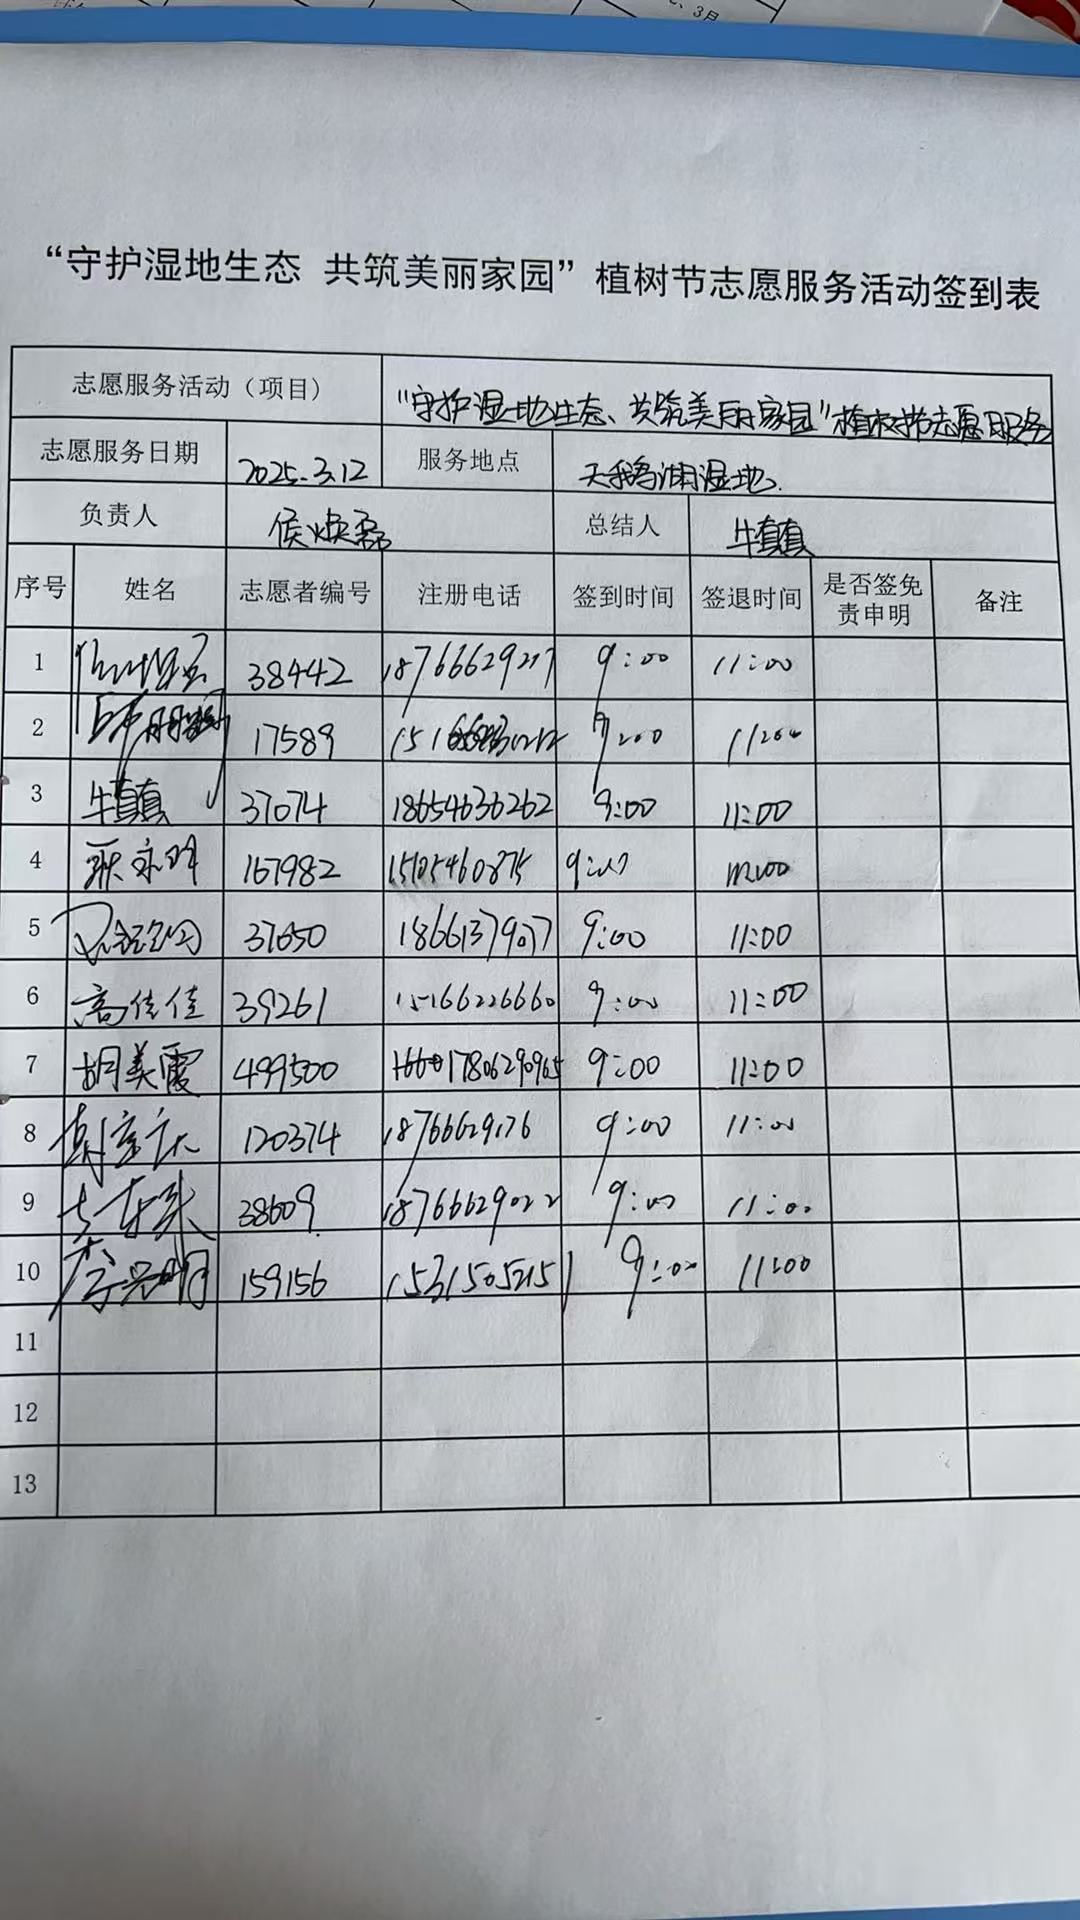 3月
“守护湿地生态 共筑美丽家园”植树节志愿服务活动签到表
志愿服务活动（项目） “守护湿地生态、共筑美丽家园”植树节志愿服务
志愿服务日期 2025.3.12 服务地点 天鹅湖湿地
负责人 侯焕磊 总结人 牛真真
序号 姓名 志愿者编号 注册电话 签到时间 签退时间 是否签免责申明 备注
1 38442 18766629217 9:00 11:00
2 17589 9:00 11:00
3 牛真真 37074 18654636262 9:00 11:00
4 167982 15105460875 9:00
5 37650 9:00 11:00
6 高佳佳 39261 15166226660 9:00 11:00
7 胡美霞 499500 17806290965 9:00 11:00
8 120374 18766629176 9:00 11:00
9 38609 18766629022 9:00 11:00
10 李兴明 159156 15315052151 9:00 11:00
11
12
13